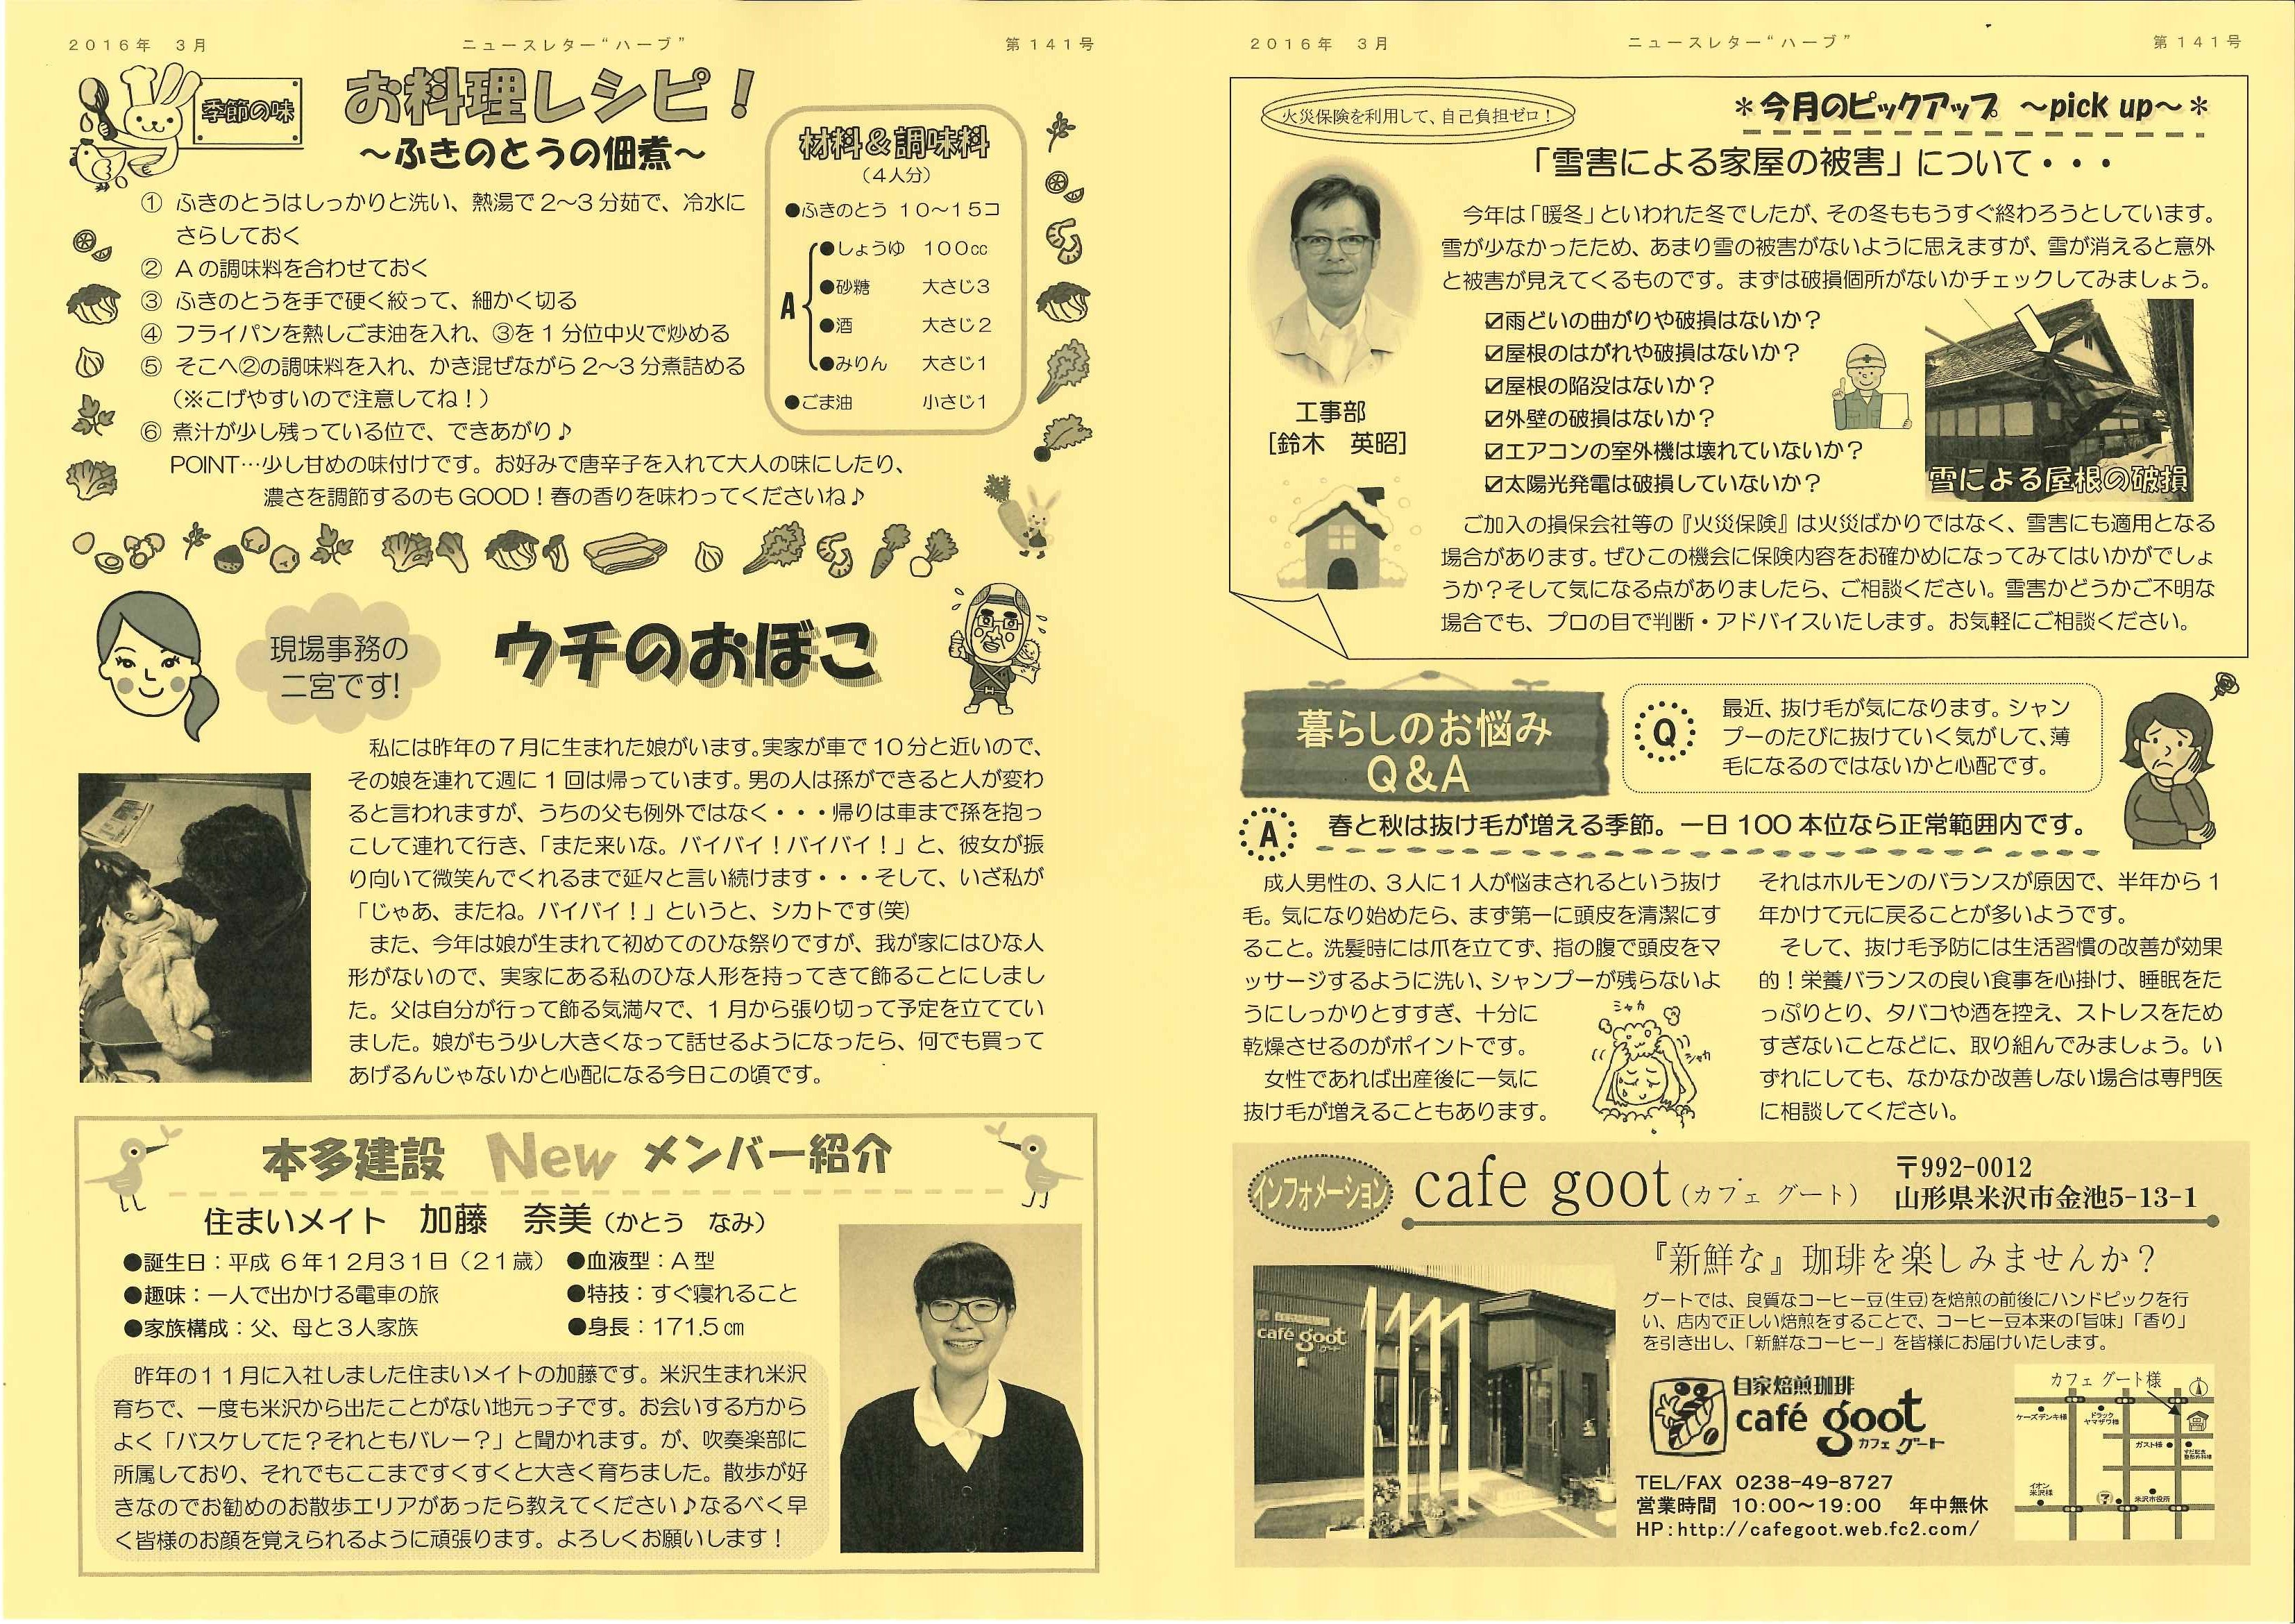 2016年 3月
ニュースレター“ハーブ”
第141号
季節の味
お料理レシピ！
～ふきのとうの佃煮～
① ふきのとうはしっかりと洗い、熱湯で2～3分茹で、冷水に
さらしておく
② Aの調味料を合わせておく
③ ふきのとうを手で硬く絞って、細かく切る
④ フライパンを熱しごま油を入れ、③を1分位中火で炒める
⑤ そこへ②の調味料を入れ、かき混ぜながら2～3分煮詰める
（※こげやすいので注意してね！）
⑥ 煮汁が少し残っている位で、できあがり♪
POINT…少し甘めの味付けです。お好みで唐辛子を入れて大人の味にしたり、
濃さを調節するのもGOOD！春の香りを味わってくださいね♪
材料＆調味料
（4人分）
●ふきのとう 10～15コ
A
●しょうゆ 100cc
●砂糖 大さじ3
●酒 大さじ2
●みりん 大さじ1
●ごま油 小さじ1
現場事務の
二宮です！
ウチのおぼこ
私には昨年の7月に生まれた娘がいます。実家が車で10分と近いので、
その娘を連れて週に1回は帰っています。男の人は孫ができると人が変わ
ると言われますが、うちの父も例外ではなく・・・帰りは車まで孫を抱っ
こして連れて行き、「また来いな。バイバイ！バイバイ！」と、彼女が振
り向いて微笑んでくれるまで延々と言い続けます・・・そして、いざ私が
「じゃあ、またね。バイバイ！」というと、シカトです(笑)
また、今年は娘が生まれて初めてのひな祭りですが、我が家にはひな人
形がないので、実家にある私のひな人形を持ってきて飾ることにしまし
た。父は自分が行って飾る気満々で、1月から張り切って予定を立ててい
ました。娘がもう少し大きくなって話せるようになったら、何でも買って
あげるんじゃないかと心配になる今日この頃です。
本多建設 New メンバー紹介
住まいメイト 加藤 奈美（かとう なみ）
●誕生日：平成 6年12月31日（21歳） ●血液型：A型
●趣味：一人で出かける電車の旅 ●特技：すぐ寝れること
●家族構成：父、母と3人家族 ●身長：171.5㎝
昨年の11月に入社しました住まいメイトの加藤です。米沢生まれ米沢
育ちで、一度も米沢から出たことがない地元っ子です。お会いする方から
よく「バスケしてた？それともバレー？」と聞かれます。が、吹奏楽部に
所属しており、それでもここまですくすくと大きく育ちました。散歩が好
きなのでお勧めのお散歩エリアがあったら教えてください♪なるべく早
く皆様のお顔を覚えられるように頑張ります。よろしくお願いします！
2016年 3月
ニュースレター“ハーブ”
第141号
火災保険を利用して、自己負担ゼロ！
＊今月のピックアップ ～pick up～＊
「雪害による家屋の被害」について・・・
工事部
[鈴木 英昭]
今年は「暖冬」といわれた冬でしたが、その冬ももうすぐ終わろうとしています。
雪が少なかったため、あまり雪の被害がないように思えますが、雪が消えると意外
と被害が見えてくるものです。まずは破損個所がないかチェックしてみましょう。
☑雨どいの曲がりや破損はないか？
☑屋根のはがれや破損はないか？
☑屋根の陥没はないか？
☑外壁の破損はないか？
☑エアコンの室外機は壊れていないか？
☑太陽光発電は破損していないか？
雪による屋根の破損
ご加入の損保会社等の『火災保険』は火災ばかりではなく、雪害にも適用となる
場合があります。ぜひこの機会に保険内容をお確かめになってみてはいかがでしょ
うか？そして気になる点がありましたら、ご相談ください。雪害かどうかご不明な
場合でも、プロの目で判断・アドバイスいたします。お気軽にご相談ください。
暮らしのお悩み
Q&A
Q
最近、抜け毛が気になります。シャン
プーのたびに抜けていく気がして、薄
毛になるのではないかと心配です。
A
春と秋は抜け毛が増える季節。一日100本位なら正常範囲内です。
成人男性の、3人に1人が悩まされるという抜け
毛。気になり始めたら、まず第一に頭皮を清潔にす
ること。洗髪時には爪を立てず、指の腹で頭皮をマ
ッサージするように洗い、シャンプーが残らないよ
うにしっかりとすすぎ、十分に
乾燥させるのがポイントです。
女性であれば出産後に一気に
抜け毛が増えることもあります。
シャカ
シャカ
それはホルモンのバランスが原因で、半年から1
年かけて元に戻ることが多いようです。
そして、抜け毛予防には生活習慣の改善が効果
的！栄養バランスの良い食事を心掛け、睡眠をた
っぷりとり、タバコや酒を控え、ストレスをため
すぎないことなどに、取り組んでみましょう。い
ずれにしても、なかなか改善しない場合は専門医
に相談してください。
インフォメーション
cafe goot（カフェ グート）
〒992-0012
山形県米沢市金池5-13-1
café goot
グート
『新鮮な』珈琲を楽しみませんか？
グートでは、良質なコーヒー豆(生豆)を焙煎の前後にハンドピックを行
い、店内で正しい焙煎をすることで、コーヒー豆本来の「旨味」「香り」
を引き出し、「新鮮なコーヒー」を皆様にお届けいたします。
自家焙煎珈琲
café goot
カフェ グート
TEL/FAX 0238-49-8727
営業時間 10:00～19:00 年中無休
HP:http://cafegoot.web.fc2.com/
カフェ グート様
ケーズデンキ様
ドラック
ヤマザワ様
ガスト様
イオン
米沢様
7
米沢市役所